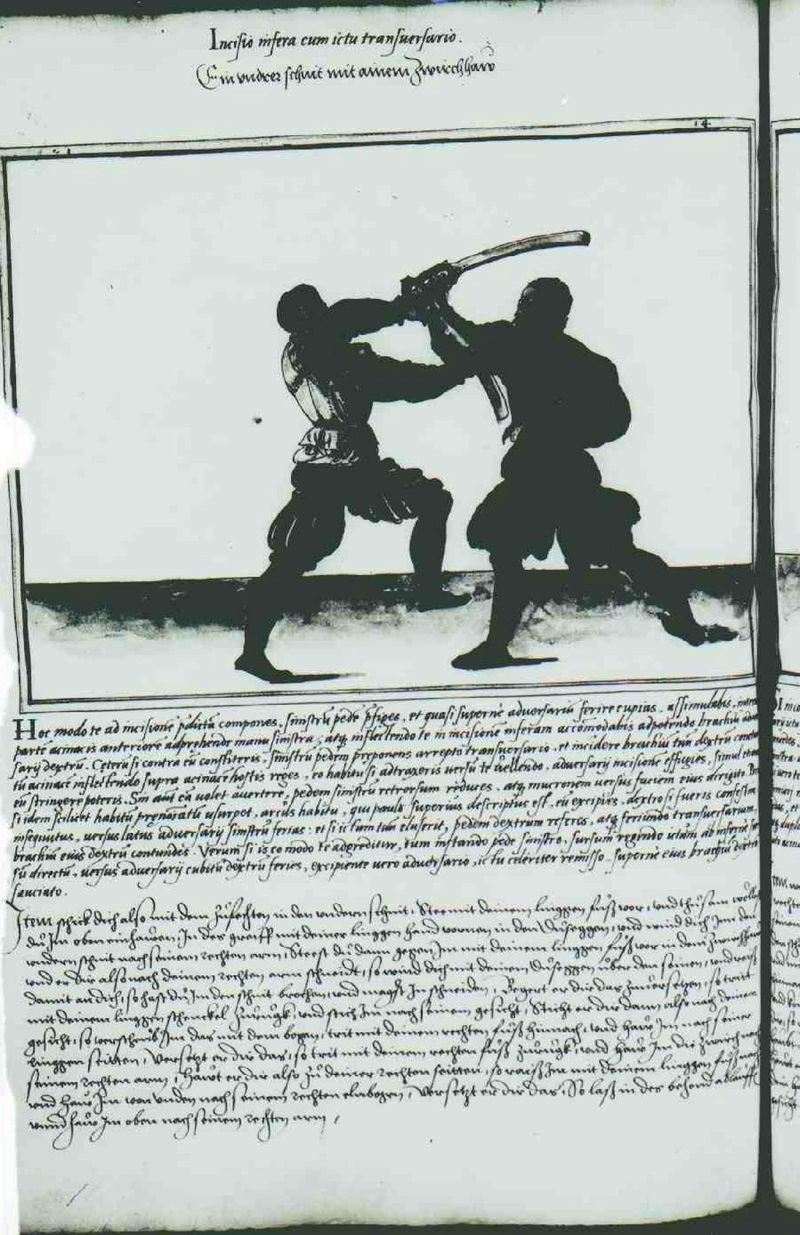 Incisio infera cum ictu transuersario.
Ein vndrer schnit mit ainem Zwirchhaw
14
Hoc modo te ad incisionē p̄dictā compones, sinistrū pede p̄figes, et quasi supernè adversariū ferire cupias, assimulabis, mox
parte acinacis anteriore adprehende manu sinistra, atq; inflectendo te in incisionē inferam accōmodabis adpetendo brachiū adver
sarÿ dextrū. Ceterū si contra eū constiteris, sinistrū pedem preponens arrepto transversario, et incidere brachiū tuū dextrū conetur
tu acinacē inflectendo supra acinacē hostis reges, eo habitu si adtraxeris versū te vellendo, adversarÿ incisionē effugies, simul
eū stringere poteris. Sin autē eā volet avertere, pedem sinistrū retrorsum reduces, atq; mucronem versus faciem eius dirigito.
si idem scilicet habitū prenaratū usurpet, arcus habitu, qui paulo superius descriptus est, eū excipies, dextro si fueris confestim
insequutus, versus latus adversarÿ sinistrū ferias: et si ictum tuū eluserit, pedem dextrum referes, atq; feriundo transversarium,
brachiū eius dextrū contundes. Verum si is eo modo te adgreditur, tum instando pede sinistro, sursum regendo ictum ab inferno
sū directū, versus adversarÿ cubitū dextrū feries, excipiente vero adversario, ictu celeriter remisso, supernè eius brachiū dextrū
sauciato.
Item schick dich also mit dem Zufechten in den vndern schnit, Stee mit deinem linggen fuß vor, vnd thu sam wellest
du Im oben einhawen, In des greiff mit deiner linggen hand vornen in dein Duseggen, vnd wind dich Im den
vndern schnit nach seinem rechten arm, Steest du dann gegen Im mit deinem linggen fuß vor in dem Zwirchhaw
vnd er dir also nach deinem rechten arm schneidt, so wind dich mit deinem Duseggen über den seinen, vnd reiß
damit an dich, so hast du Im den schnit brochen, vnd magst In schneiden, Begert er dir das zuuersetzen, so trit
mit deinem linggen schenckel Zurugk, vnd stich Im nach seinem gesicht, Sticht er dir dann also nach deinem
gesicht, so versetz Im das mit dem bogen, trit mit deinem rechten fuß hinnach, vnd haw Im nach seiner
linggen seitten, Versetzt er dir das, so trit mit deinem rechten fuß Zurugk, vnd haw Im die zwirch nach
seinem rechten arm, Hawt er dir also Zu deiner rechten seitten, so raiß Im mit deinem linggen fuß nach
vnd haw Im von vnden nach seinem rechten elnbogen, Versetzt er dir das, So laß in des behend ablauffen
vnnd haw Im oben nach seinem rechten arm,